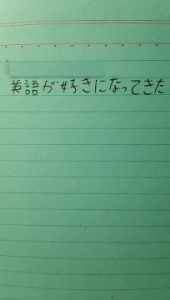 英語が好きになってきた